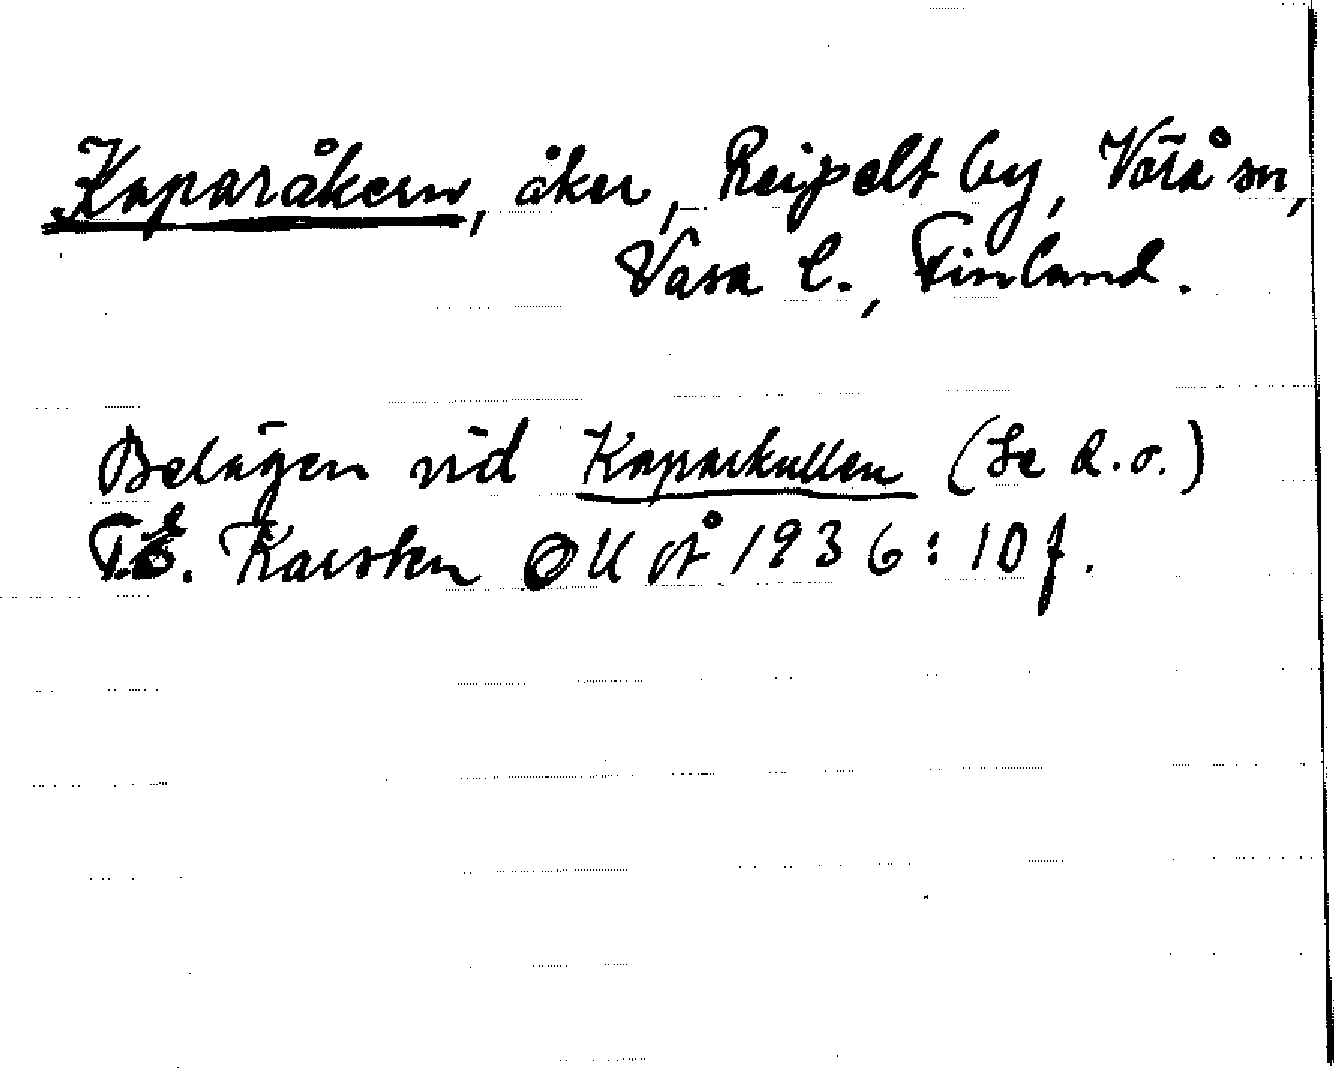 Kaparåkern, åker, Reipelt by, Vörå sn,
Vasa l., Finland.
Belägen vid Kaparkullen (Se d.o.)
T.E. Karsten OUÅ 1936: 10 f.